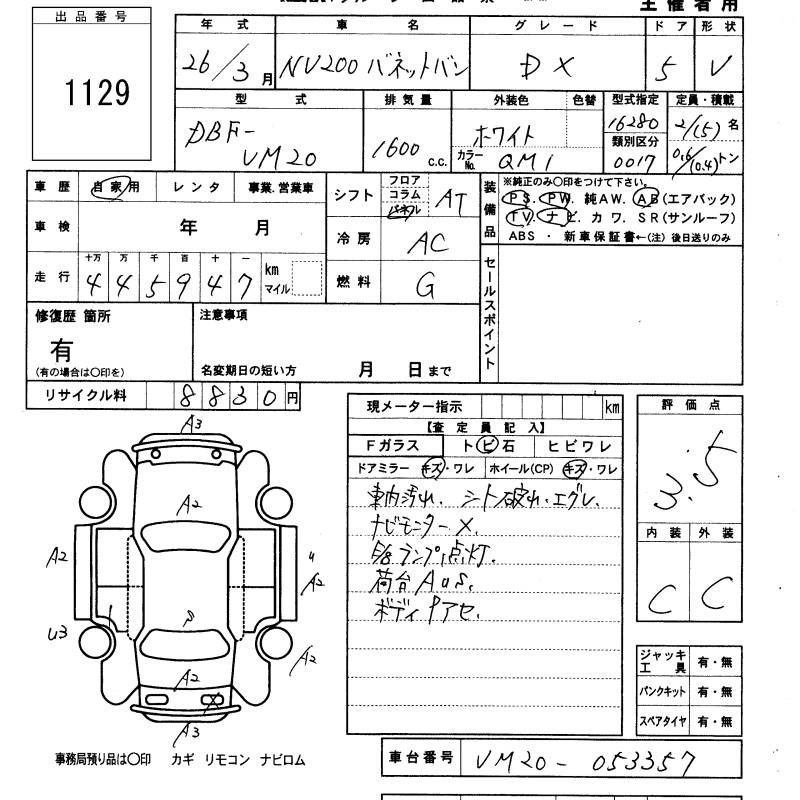 主催者用
出品番号
1129
年式 車名 グレード ドア 形状
26/3月 NV200 バネットバン DX 5 V
型式 排気量 外装色 色替 型式指定 定員・積載
DBF-VM20 1600 c.c. ホワイト 16280 2/(5)名
カラーNo. QM1 類別区分 0017 0.6/(0.4)トン
車歴 自家用 レンタ 事業.営業車
シフト フロア コラム パネル AT
装備品 ※純正のみ〇印をつけて下さい。
PS. PW. 純AW. AB(エアバック)
TV. ナビ. カワ. SR(サンルーフ)
ABS ・ 新車保証書←(注) 後日送りのみ
車検 年 月
冷房 AC
走行 十万 万 千 百 十 一
4 4 5 9 4 7 km マイル
燃料 G
セールスポイント
修復歴 箇所
有
(有の場合は〇印を)
注意事項
名変期日の短い方 月 日まで
リサイクル料 8830円
現メーター指示 km
【査定員記入】
Fガラス トビ石 ヒビワレ
ドアミラー キズ・ワレ ホイール(CP) キズ・ワレ
車内汚れ. シート破れ.エグレ.
ナビモニター×.
ランプ点灯.
荷台AUS.
ボディ アセ.
評価点
3.5
内装 外装
C C
A3
A2
A2
A2
U3
A2
A2
A3
ジャッキ工具 有・無
パンクキット 有・無
スペアタイヤ 有・無
事務局預り品は〇印 カギ リモコン ナビロム
車台番号 VM20-053357